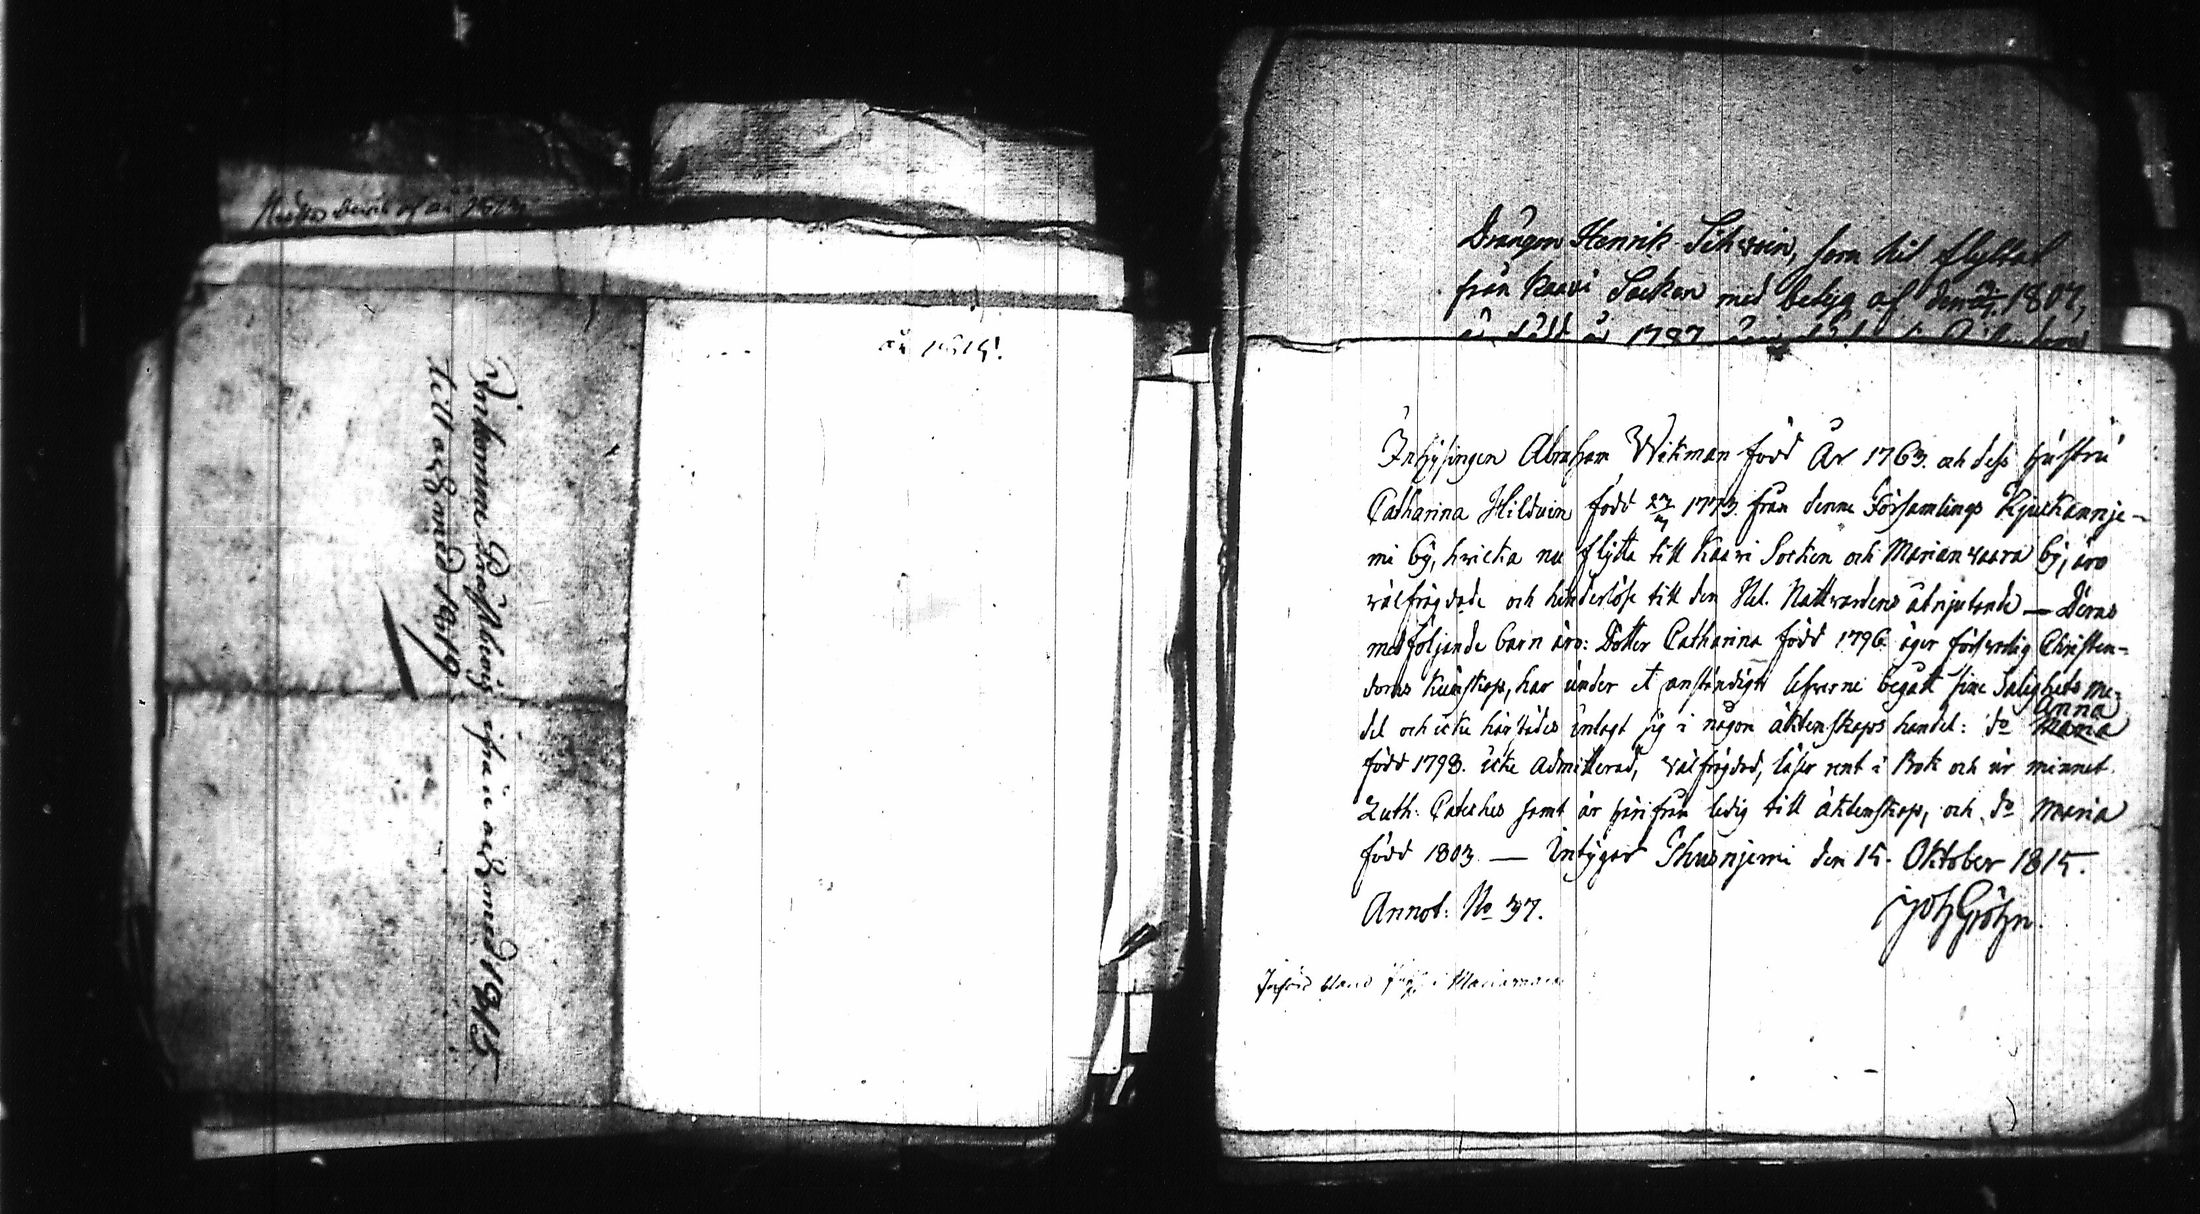 af år 1818
år 1815.
Inkomne Prästbevis ifrån och med 1815
till och med 1819
Drängen Henrik Schwein, som hit flyttat
från Kaavi Socken med betyg af den 1807,
är född år 1787
Inhysingen Abraham Wikman född År 1763. och dess hustru
Catharina Hilduin född 1773. från denne Församlings Kjukannje-
mi by, hvilka nu flytta till Kaavi Socken och Marianvaara by, äro
välfrägdade och hinderlöse till den Hel. Nattvardens åtnjutande — Deras
medföljande barn äro: Dotter Catharina född 1796. äger försvarlig Christen-
doms kunskap, har under et anständigt lefverne begått sine Salighets me-
Anna
del och icke härstädes inlagt sig i någon äktenskaps handel: do Maria
född 1798. icke admitterad, välfrägdad, läser rent i Bok och ur minnet
Luth. Cateches samt är härifrån ledig till äktenskap, och do Maria
född 1803. — Intygar Thusnjemi den 15. Oktober 1815.
Annot: No 37.
Joh Gröhn.
Införd bland i Marianvaara